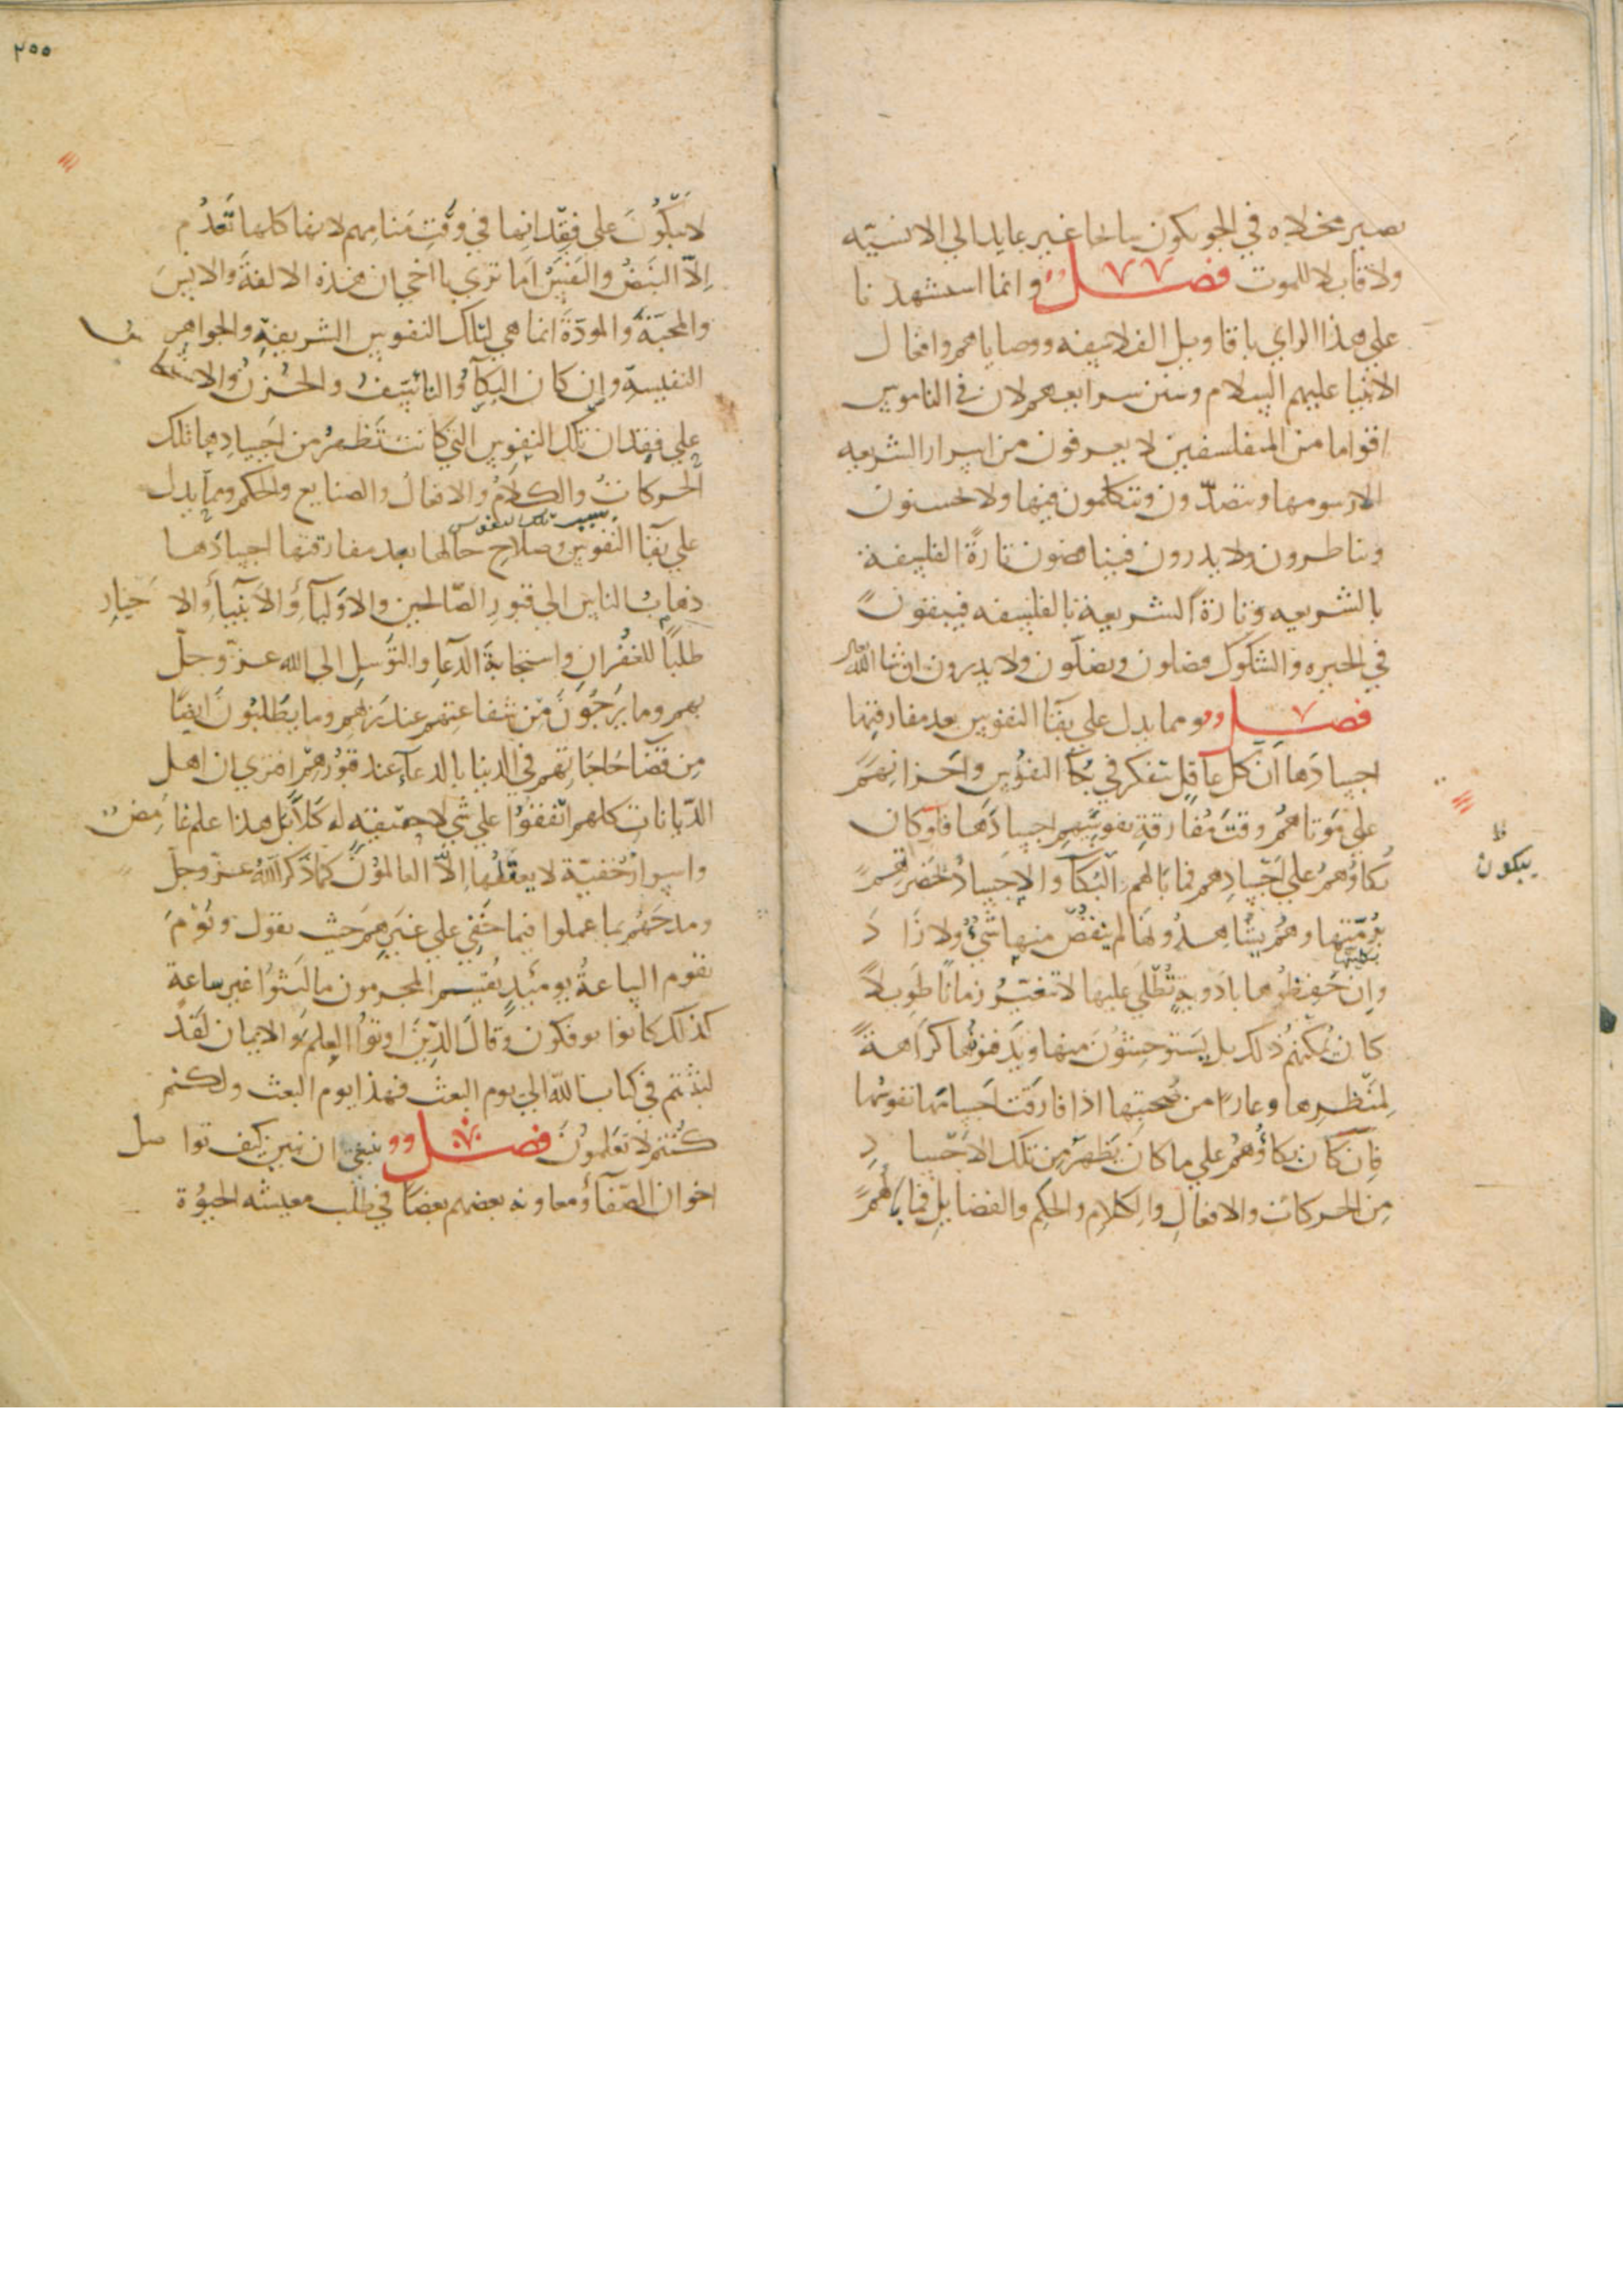 تصير مخلاه في الجو يكون سايحا غير عايد الي الانسيّه
ولا قابلا للموت فصل وانما استشهدنا
علي هذا الراي باقاويل الفلاسفه ووصاياهم وافعال
الانبيا عليهم السلام وسنن شرايعهم لان في الناموس
اقواما من المتفلسفين لا يعرفون من اسرار الشريعه
الا رسومها ويتصدّرون ويتكلمون فيها ولا يحسنون
ويناظرون ولا يدرون فيناقضون تارةً الفلسفة
بالشريعه وتارة الشريعة بالفلسفه فيبقون
في الحيره والشكوك فيضلون ويضلّون ولا يدرون ان شا الله
فصل ومما يدل علي بقآ النفوس بعد مفارقتها
اجسادها ان كل عاقل تفكر في بكآ النفوس واحزانهم
علي موتاهم وقت مفارقة نفوسهم اجسادها فلو كان
بكاؤهم علي اجسادهم فما بالهم البكآ والاجساد بحضرتهم
برمّتها وهم يشاهدونها لم ينقص منها شيٌ ولا زاد
بكليتها
وان حفظوها بادوية تطلي عليها لا تتغير زمانا طويلا
كان يمكنهم ذلك بل يستوحشون منها ويدفنونها كراهة
لمنظرها وعارا من صحبتها اذا فارقت احبائها نفوسُها
فان كان بكاؤهم علي ما كان يظهر من تلك الاجساد
من الحركات والافعال والكلام والحكم والفضايل فما بالهم
يبكون
ظ
٢٥٥
لا يبكون علي فقدانها في وقت منامهم لانها كلها تعدم
الّا النبض والنفس اما تري يا اخي ان هذه الالفة والانس
والمحبة والمودّة انما هي لتلك النفوس الشريفة والجواهر
النفيسة وان كان البكآ والتاسّف والحزن والا
علي فقدان تلك النفوس التي كانت تظهر من اجسادها تلك
الحركات والكلام والافعال والصنايع والحكم ومما يدل
بسبب تلك النفوس
علي بقآ النفوس وصلاح حالها بعد مفارقتها اجسادها
ذهاب الناس الي قبور الصّالحين والاوليآ والانبيآ والاخيار
طلباً للغفران واستجابة الدعآ والتوسل الي الله عزّ وجلّ
بهم وما يرجون من شفاعتهم عند ربهم وما يطلبون ايضًا
من قضآ حاجاتهم في الدنيا بالدعآ عند قبورهم افتري ان اهل
الدّيانات كلهم اتفقوا علي شي لا حقيقه له كلّا بل هذا علم غامض
واسرار خفيّة لا يعقلها الّا العالمون كما ذكر الله عزّ وجلّ
ومدحهم بما عملوا فيما خفي علي غيرهم حيث يقول ويوم
تقوم الساعة يومئذ يقسم المجرمون ما لبثوا غير ساعة
كذلك كانوا يوفكون وقال الذين اوتوا العلم والايمان لقد
لبثتم في كتاب الله الي يوم البعث فهذا يوم البعث ولكنكم
كنتم لا تعلمون فصل ينبغي ان نبين كيف تواصل
اخوان الصّفآ ومعاونه بعضهم بعضًا في طلب معيشه الحيوة